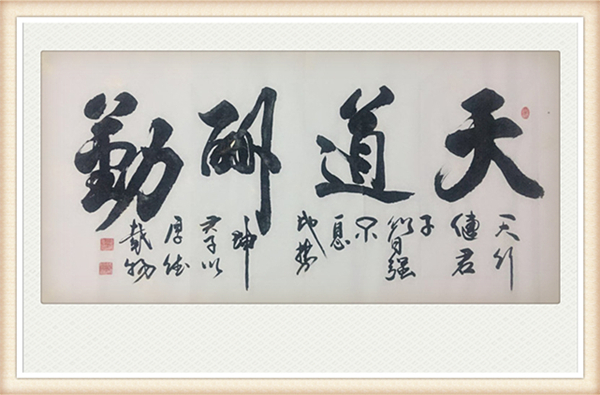 天道酬勤
天行
健君
子
以自强
不
息
地势
坤
君子以
厚德
载物